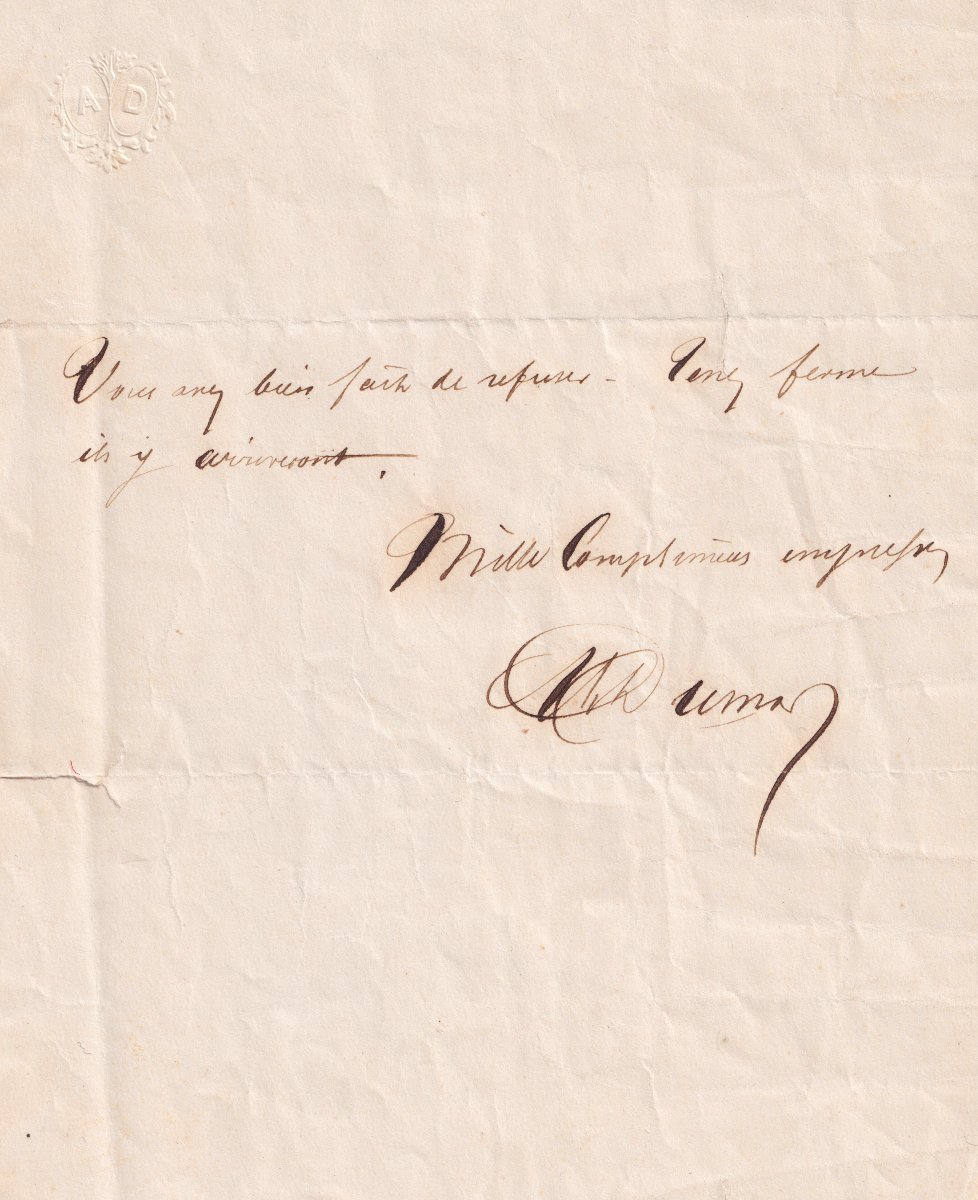 A D
Vous avez bien fait de refuser - Tenez ferme
ils y arriveront.
Mille Compliments empressés
Alex Dumas